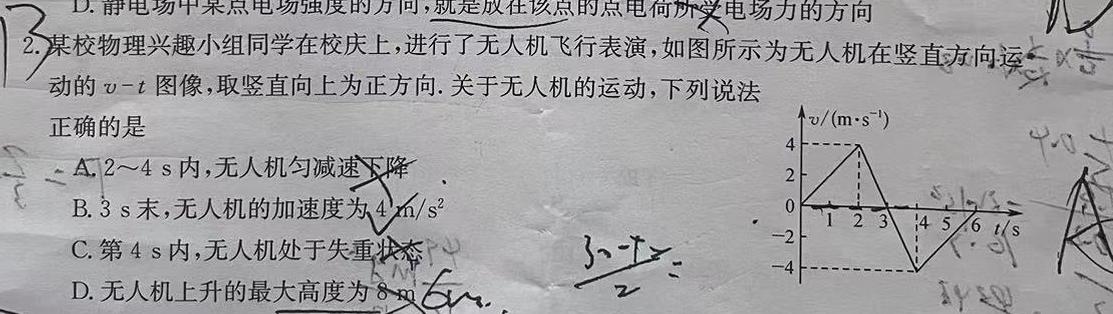 D. 静电场中某点电场强度的方向,就是放在该点的点电荷所受电场力的方向
2. 某校物理兴趣小组同学在校庆上,进行了无人机飞行表演,如图所示为无人机在竖直方向运
动的 v-t 图像,取竖直向上为正方向. 关于无人机的运动,下列说法
正确的是
A. 2～4 s 内,无人机匀减速下降
B. 3 s 末,无人机的加速度为 4 m/s²
C. 第 4 s 内,无人机处于失重状态
D. 无人机上升的最大高度为 8 m 6m.
v/(m·s⁻¹)
4
2
0
-2
-4
1 2 3 4 5 6 t/s